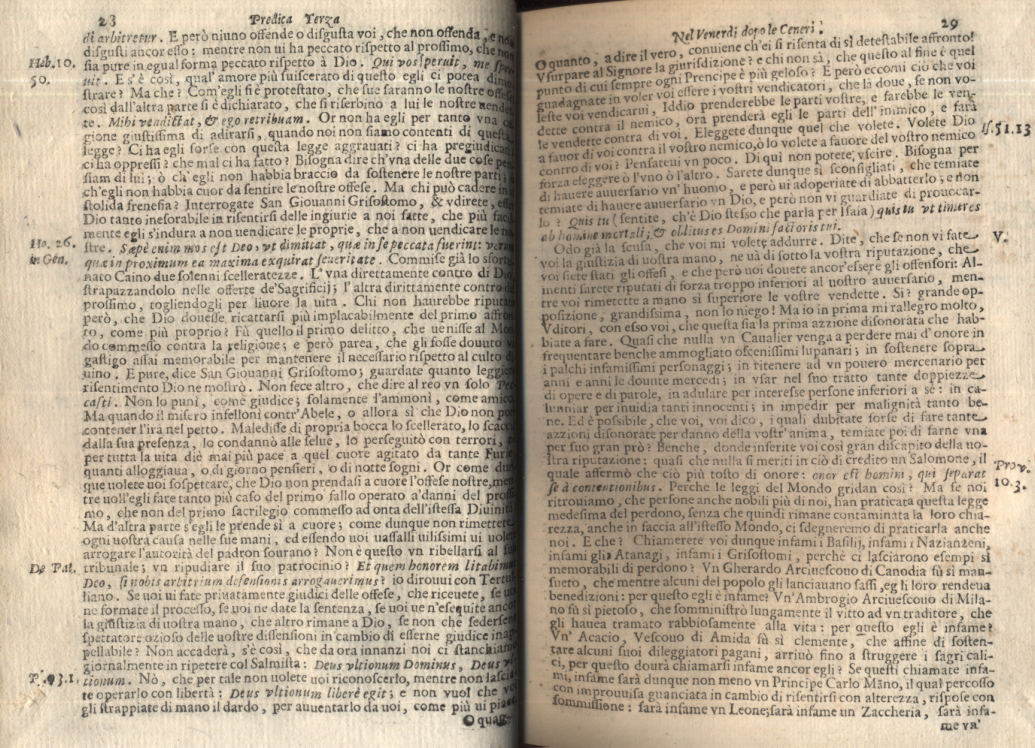 23 Predica Terza
di arbitretur. E però niuno offende o disgusta voi, che non offenda, e
disgusti ancor esso: mentre non ui ha peccato rispetto al prossimo, che
Hab. 10.
50.
sia pure in egual forma peccato rispetto à Dio. Qui vos spernit, me
E s'è così, qual' amore più suiscerato di questo egli ci potea
strare? Ma che? Com'egli si è protestato, che sue saranno le nostre offese
così dall'altra parte si è dichiarato, che si riserbino a lui le nostre
te. Mihi vendictat, & ego retribuam. Or non ha egli per tanto vna
gione giustissima di adirarsi, quando noi non siamo contenti di questa
legge? Ci ha egli forse con questa legge aggrauati? ci ha pregiudicati
ci ha oppressi? che mal ci ha fatto? Bisogna dire ch'vna delle due cose
siam di lui; ò ch'egli non habbia braccio da sostenere le nostre parti
ch'egli non habbia cuor da sentire le nostre offese. Ma chi può cadere in
stolida frenesia? Interrogate San Giouanni Grisostomo, & vdirete,
Dio tanto inesorabile in risentirsi delle ingiurie a noi fatte, che più
mente egli s'indura a non uendicare le proprie, che a non uendicare le
Ho. 26.
in Gen.
stre. Sæpè enim mos est Deo, vt dimittat, quæ in se peccata fuerint:
quæ in proximum ea maxima exquirat seueritate. Commise già lo
nato Caino due solenni scelleratezze. L'vna direttamente contro di
strapazzandolo nelle offerte de' Sagrificij; l'altra dirittamente contro
prossimo, togliendogli per liuore la uita. Chi non haurebbe
però, che Dio douesse ricattarsi più implacabilmente del primo
to, come più proprio? Fù quello il primo delitto, che uenisse al
do commesso contra la religione; e però parea, che gli fosse douuto
gastigo assai memorabile per mantenere il necessario rispetto al culto
uino. E pure, dice San Giouanni Grisostomo; guardate quanto
risentimento Dio ne mostrò. Non fece altro, che dire al reo vn solo
casti. Non lo punì, come giudice; solamente l'ammonì, come amico
Ma quando il misero infellonì contr'Abele, o allora sì che Dio non
contener l'ira nel petto. Maledisse di propria bocca lo scellerato, lo
dalla sua presenza, lo condannò alle selue, lo perseguitò con terrori,
per tutta la uita diè mai più pace a quel cuore agitato da tante
quanti alloggiaua, o di giorno pensieri, o di notte sogni. Or come
que uolete uoi sospettare, che Dio non prendasi a cuore l'offese nostre,
tre uoll'egli fate tanto più caso del primo fallo operato a' danni del
mo, che non del primo sacrilegio commesso ad onta dell'istessa Diuinità
Ma d'altra parte s'egli le prende sì a cuore; come dunque non rimettere
ogni uostra causa nelle sue mani, ed essendo uoi uassalli uilissimi ui
arrogare l'autorità del padron sourano? Non è questo vn ribellarsi al
De Pat.
tribunale; vn ripudiare il suo patrocinio? Et quem honorem litabimus
Deo, si nobis arbitrium defensionis arrogauerimus? io dirouui con
liano. Se uoi ui fate priuatamente giudici delle offese, che riceuete, se
ne formate il processo, se uoi ne date la sentenza, se uoi ue n'esequite
la giustizia di uostra mano, che altro rimane a Dio, se non che
spettatore ozioso delle uostre dissensioni in cambio di esserne giudice
pellabile? Non accaderà, s'è così, che da ora innanzi noi ci stanchiamo
giornalmente in ripetere col Salmista: Deus vltionum Dominus, Deus
Ps. 93. 1.
tionum. Nò, che per tale non uolete uoi riconoscerlo, mentre non
te operarlo con libertà: Deus vltionum liberè egit; e non vuol che
gli strappiate di mano il dardo, per auuentarlo da uoi, come più ui
O quan-
Nel Venerdì dopo le Ceneri. 29
O quanto, a dire il vero, conuiene ch'ei si risenta di sì detestabile affronto!
Vsurpare al Signore la giurisdizione? e chi non sà, che questo al fine è quel
punto di cui sempre ogni Prencipe è più geloso? E però eccoui ciò che voi
guadagnate in voler voi essere i vostri vendicatori, che là doue, se non vo-
leste voi vendicarui, Iddio prenderebbe le parti vostre, e farebbe le ven-
dette contra il nemico, ora prenderà egli le parti dell'inimico, e farà
Is. 51. 13
le vendette contra di voi. Eleggete dunque quel che volete. Volete Dio
a fauor di voi contra il vostro nemico, ò lo volete a fauore del vostro nemico
contro di voi? Pensateui vn poco. Di quì non potete vscire. Bisogna per
forza eleggere ò l'vno ò l'altro. Sarete dunque sì sconsigliati, che temiate
di hauere auuersario vn' huomo, e però ui adoperiate di abbatterlo; e non
temiate di hauere auuersario vn Dio, e però non vi guardiate di prouocar-
lo? Quis tu (sentite, ch'è Dio stesso che parla per Isaia) quis tu vt timeres
ab homine mortali; & oblitus es Domini factoris tui.
V.
Odo già la scusa, che voi mi volete addurre. Dite, che se non vi fate
voi la giustizia di uostra mano, ne uà di sotto la vostra riputazione, che
voi siete stati gli offesi, e che però uoi douete ancor'essere gli offensori: Al-
menti sarete riputati di forza troppo inferiori al uostro auuersario, men-
tre voi rimettete a mano sì superiore le vostre vendette. Sì? grande op-
posizione, grandissima, non lo niego! Ma io in prima mi rallegro molto,
Vditori, con esso voi, che questa sia la prima azzione disonorata che hab-
biate a fare. Quasi che nulla vn Caualier venga a perdere mai d'onore in
frequentare benche ammogliato oscenissimi lupanari; in sostenere sopra
i palchi infamissimi personaggi; in ritenere ad vn pouero mercenario per
anni e anni le douute mercedi; in vsar nel suo tratto tante doppiezze
di opere e di parole, in adulare per interesse persone inferiori a sè: in ca-
lunniar per inuidia tanti innocenti; in impedir per malignità tanto be-
ne. Ed è possibile, che voi, voi dico, i quali dubitate forse di fare tante
azzioni disonorate per danno della vostr'anima, temiate poi di farne vna
per suo gran prò? Benche, donde inferite voi così gran discapito della uo-
stra riputazione: quasi che nulla si meriti in ciò di credito vn Salomone, il
Prov.
10. 3.
quale affermò che ciò più tosto di onore: onor est homini, qui separat
se à contentionibus. Perche le leggi del Mondo gridan così? Ma se noi
ritrouiamo, che persone anche nobili più di noi, han praticata questa legge
medesima del perdono, senza che quindi rimane contaminata la loro chia-
rezza, anche in faccia all'istesso Mondo, ci sdegneremo di praticarla anche
noi. E che? Chiamerete voi dunque infami i Basilij, infami i Nazianzeni,
infami gli Atanagi, infami i Grisostomi, perche ci lasciarono esempi sì
memorabili di perdono? Vn Gherardo Arciuescouo di Canodia fù sì man-
sueto, che mentre alcuni del popolo gli lanciauano sassi, egli loro rendeua
benedizioni: per questo egli è infame? Vn'Ambrogio Arciuescouo di Mila-
no fù sì pietoso, che somministrò lungamente il vitto ad vn traditore, che
gli hauea tramato rabbiosamente alla vita: per questo egli è infame?
Vn' Acacio, Vescouo di Amida fù sì clemente, che affine di sosten-
tare alcuni suoi dileggiatori pagani, arriuò fino a struggere i sagri cali-
ci, per questo dourà chiamarsi infame ancor egli? Se questi chiamate infa-
mi, infame sarà dunque non meno vn Principe Carlo Mãno, il qual percosso
con improuuisa guanciata in cambio di risentirsi con alterezza, rispose con
sommissione: sarà infame vn Leone; sarà infame vn Zaccheria, sarà infa-
me vn'